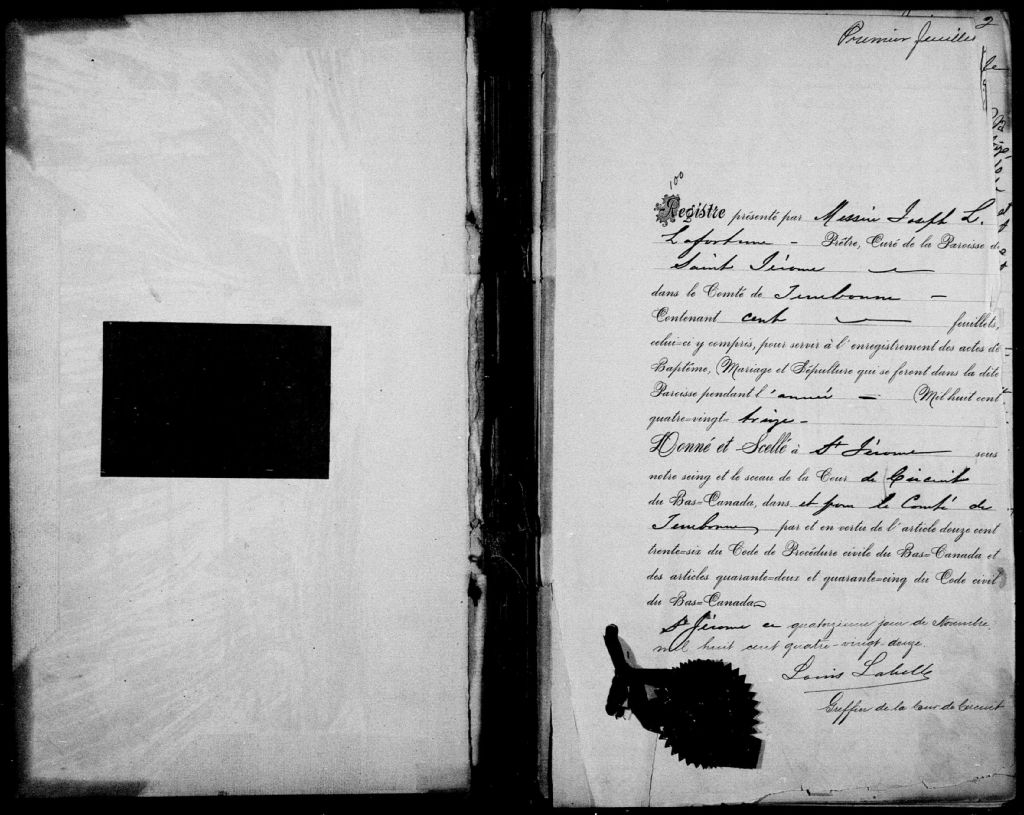 2
Premier feuillet
100
Registre présenté par Messire Joseph L.
Lafortune - Prêtre, Curé de la Paroisse de
Saint Jérome
dans le Comté de Terrebonne -
Contenant cent feuillets,
celui=ci y compris, pour servir à l'enregistrement des actes de
Baptême, Mariage et Sépulture qui se feront dans la dite
Paroisse pendant l'année - Mil huit cent
quatre=vingt= treize -
Donné et Scellé à St Jérome sous
notre seing et le sceau de la Cour de Circuit
du Bas=Canada, dans et pour le Comté de
Terrebonne par et en vertu de l'article douze cent
trente=six du Code de Procédure civile du Bas=Canada et
des articles quarante=deux et quarante=cinq du Code civil
du Bas=Canada
St Jérome ce quatorzieme jour de Novembre
mil huit cent quatre-vingt-douze.
Louis Labelle
Greffier de la Cour de Circuit